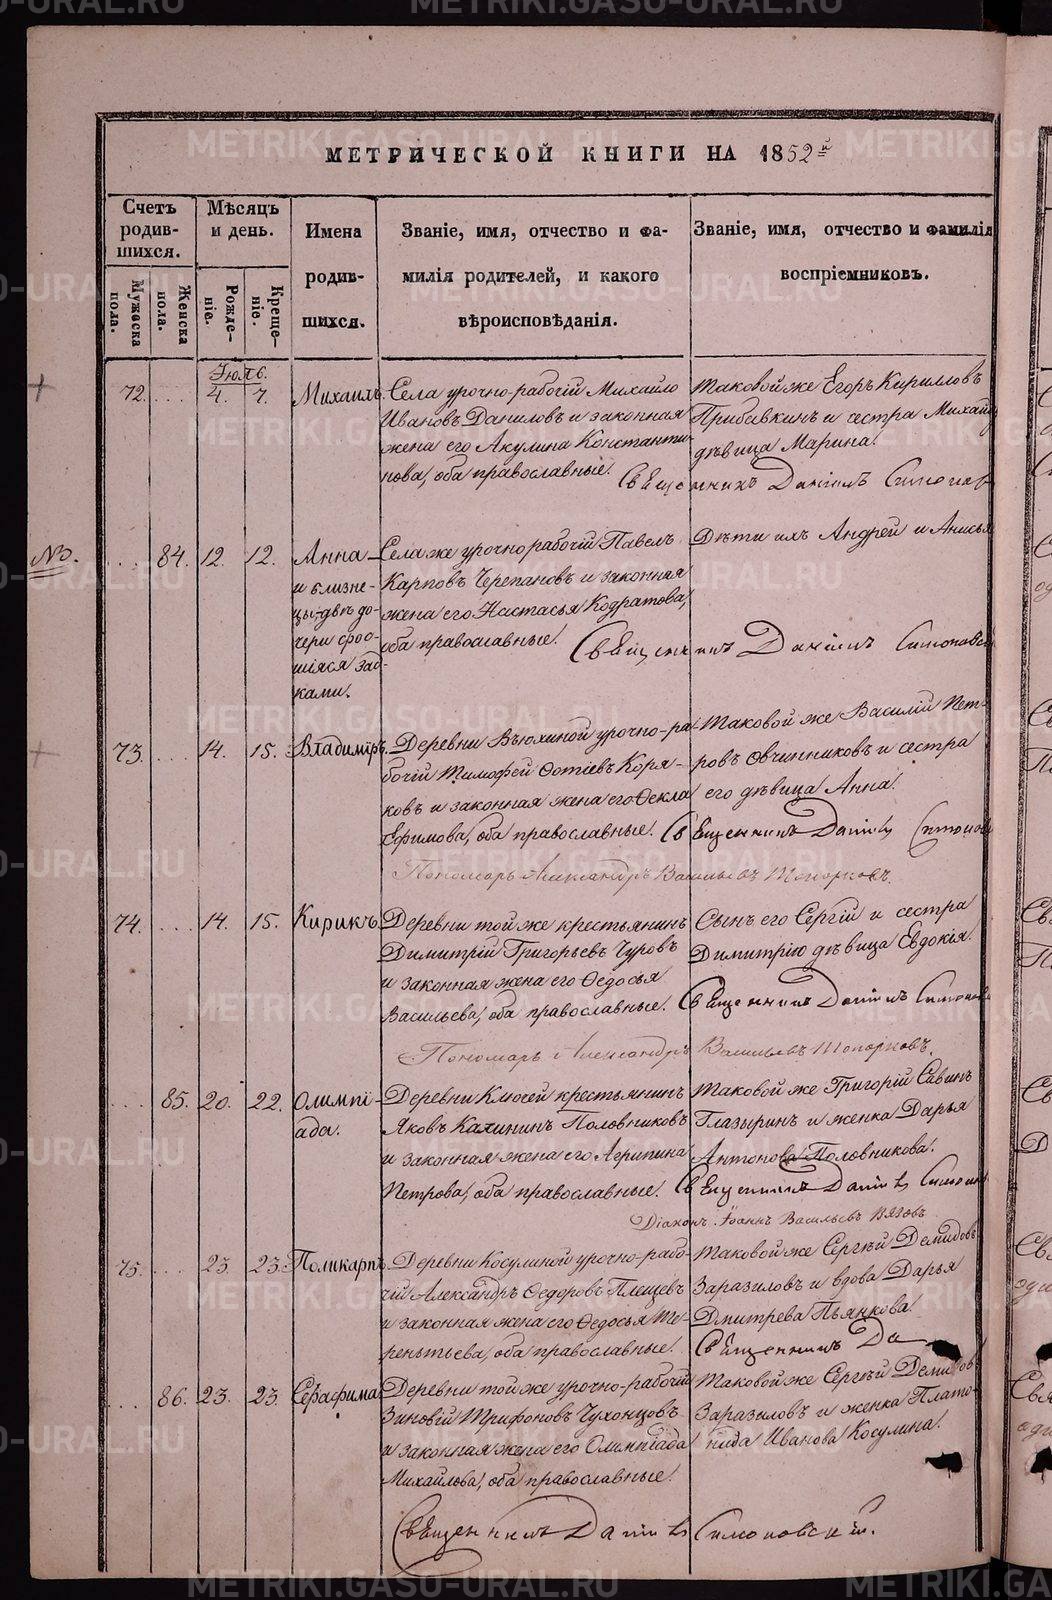 METRIKI.GASO-URAL.RU
МЕТРИЧЕСКОЙ КНИГИ НА 1852й
Счетъ родившихся.
Мужеска пола.
Женска пола.
Мѣсяцъ и день.
Рожденіе.
Крещеніе.
Имена родившихся.
Званіе, имя, отчество и фамилія родителей, и какого вѣроисповѣданія.
Званіе, имя, отчество и фамилія воспріемниковъ.
Іюль.
72. 4. 7. Михаилъ.
Села урочно-рабочій Михайло
Ивановъ Даниловъ и законная
жена его Акулина Константи-
нова, оба православные.
Таковой же Егоръ Кирилловъ
Прибавкинъ и сестра Михайлы
дѣвица Марина.
Священникъ Даніилъ Симоновс
№.
84. 12. 12. Анна
и близне-
цы-двѣ до-
чери
Села же урочнорабочій Павелъ
Карповъ Черепановъ и законная
жена его Настасья Кодратова,
оба православные.
Дѣти ихъ Андрей и Анисья
Священникъ Даніилъ Симоновс
73. 14. 15. Владиміръ.
Деревни Вьюхиной урочно-ра-
бочій Тимофей Фотіевъ Коря-
ковъ и законная жена его Фекла
Ефимова, оба православные.
Таковой же Василій Пет-
ровъ Овчинниковъ и сестра
его дѣвица Анна.
Священникъ Даніилъ Симонов
Пономарь Александръ Васильевъ Топорковъ.
74. 14. 15. Кирикъ
Деревни той же крестьянинъ
Димитрій Григорьевъ Чуровъ
и законная жена его Федосья
Васильева, оба православные.
Сынъ его Сергій и сестра
Димитрію дѣвица Евдокія.
Священникъ Даніилъ Симонов
Пономарь Александръ Васильевъ Топорковъ.
85. 20. 22. Олимпі-
ада.
Деревни Ключей крестьянинъ
Яковъ Калининъ Половниковъ
и законная жена его Агрипина
Петрова, оба православные.
Таковой же Григорій Савинъ
Глазыринъ и женка Дарья
Антонова Половникова.
Священникъ Даніилъ Симонов
Діаконъ Іоаннъ Васильевъ
75. 23 23. Поликарпъ.
Деревни Косулиной урочно-рабо-
чій Александръ Федоровъ Плещевъ
и законная жена его Федосья Те-
реньтьева, оба православные.
Таковой же Сергѣй Демидовъ
Заразиловъ и вдова Дарья
Дмитрева Пьянкова.
Священникъ Да
86. 23. 23. Серафима
Деревни той же урочно-рабочій
Зиновій Трифоновъ Чухонцовъ
и законная жена его Олимпіада
Михайлова, оба православные.
Таковой же Сергѣй Демидовъ
Заразиловъ и женка Плато-
нида Иванова Косулина.
Священникъ Даніилъ Симоновскій.